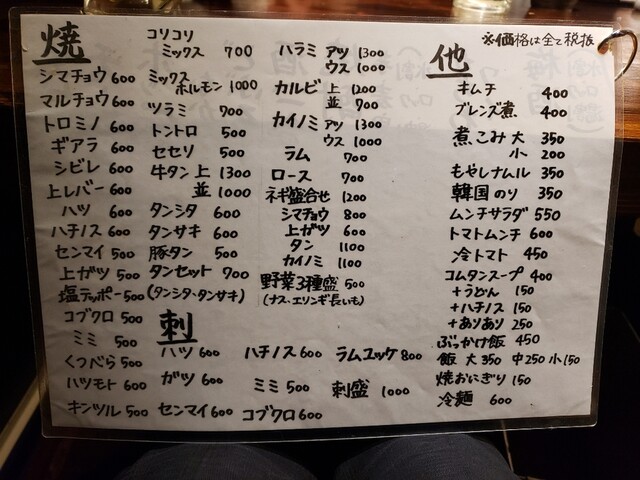 焼
シマチョウ 600
マルチョウ 600
トロミノ 600
ギアラ 600
シビレ 600
上レバー 600
ハツ 600
ハチノス 600
センマイ 500
上ガツ 500
塩テッポー 500
コブクロ 500
ミミ 500
くつべら 500
ハツモト 600
キンツル 500
コリコリ
ミックス 700
ミックス
ホルモン 1000
ツラミ 700
トントロ 500
セセリ 500
牛タン 上 1300
並 1000
タンシタ 600
タンサキ 600
豚タン 500
タンセット 700
(タンシタ、タンサキ)
ハラミ アツ 1300
ウス 1000
カルビ 上 1200
並 700
カイノミ アツ 1300
ウス 1000
ラム 700
ロース 700
ネギ盛合せ 1200
シマチョウ 800
上ガツ 600
タン 1100
カイノミ 1100
野菜3種盛 500
(ナス、エリンギ、長いも)
刺
ハツ 600 ハチノス 600 ラムユッケ 800
ガツ 600 ミミ 500 刺盛 1000
センマイ 600 コブクロ 600
※価格は全て税抜
他
キムチ 400
ブレンズ煮 400
煮こみ 大 350
小 200
もやしナムル 350
韓国のり 350
ムンチサラダ 550
トマトムンチ 600
冷トマト 450
コムタンスープ 400
+うどん 150
+ハチノス 150
+ありあり 250
ぶっかけ飯 450
飯 大350 中250 小150
焼おにぎり 150
冷麺 600